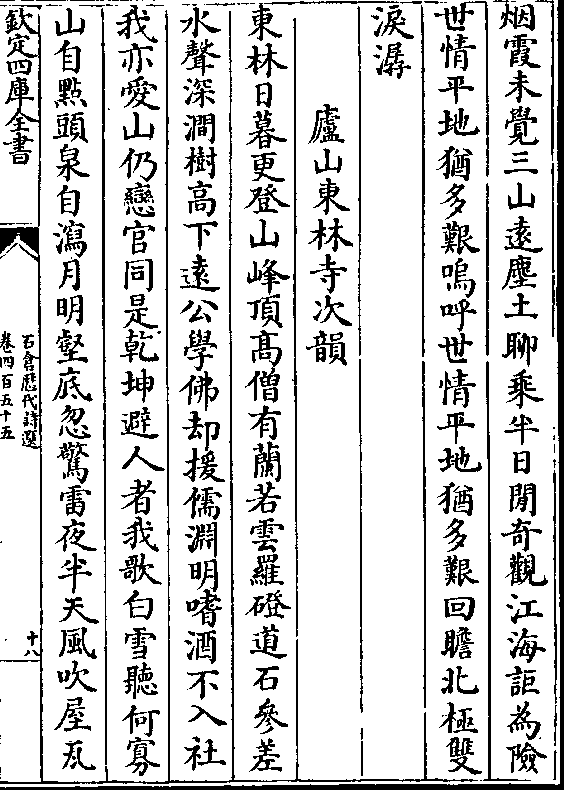 烟霞未覺三山遠塵土聊乘半日閒奇觀江海詎為險
世情平地猶多艱嗚呼世情平地猶多艱回瞻北極雙
淚潺
廬山東林寺次韻
東林日暮更登山峰頂高僧有蘭若雲羅磴道石參差
水聲深澗樹高下遠公學佛却援儒淵明嗜酒不入社
我亦愛山仍戀官同是乾坤避人者我歌白雪聽何寡
山自點頭泉自瀉月明壑底忽驚雷夜半天風吹屋瓦
欽定四庫全書
石倉歷代詩選
卷四百五十五
十八